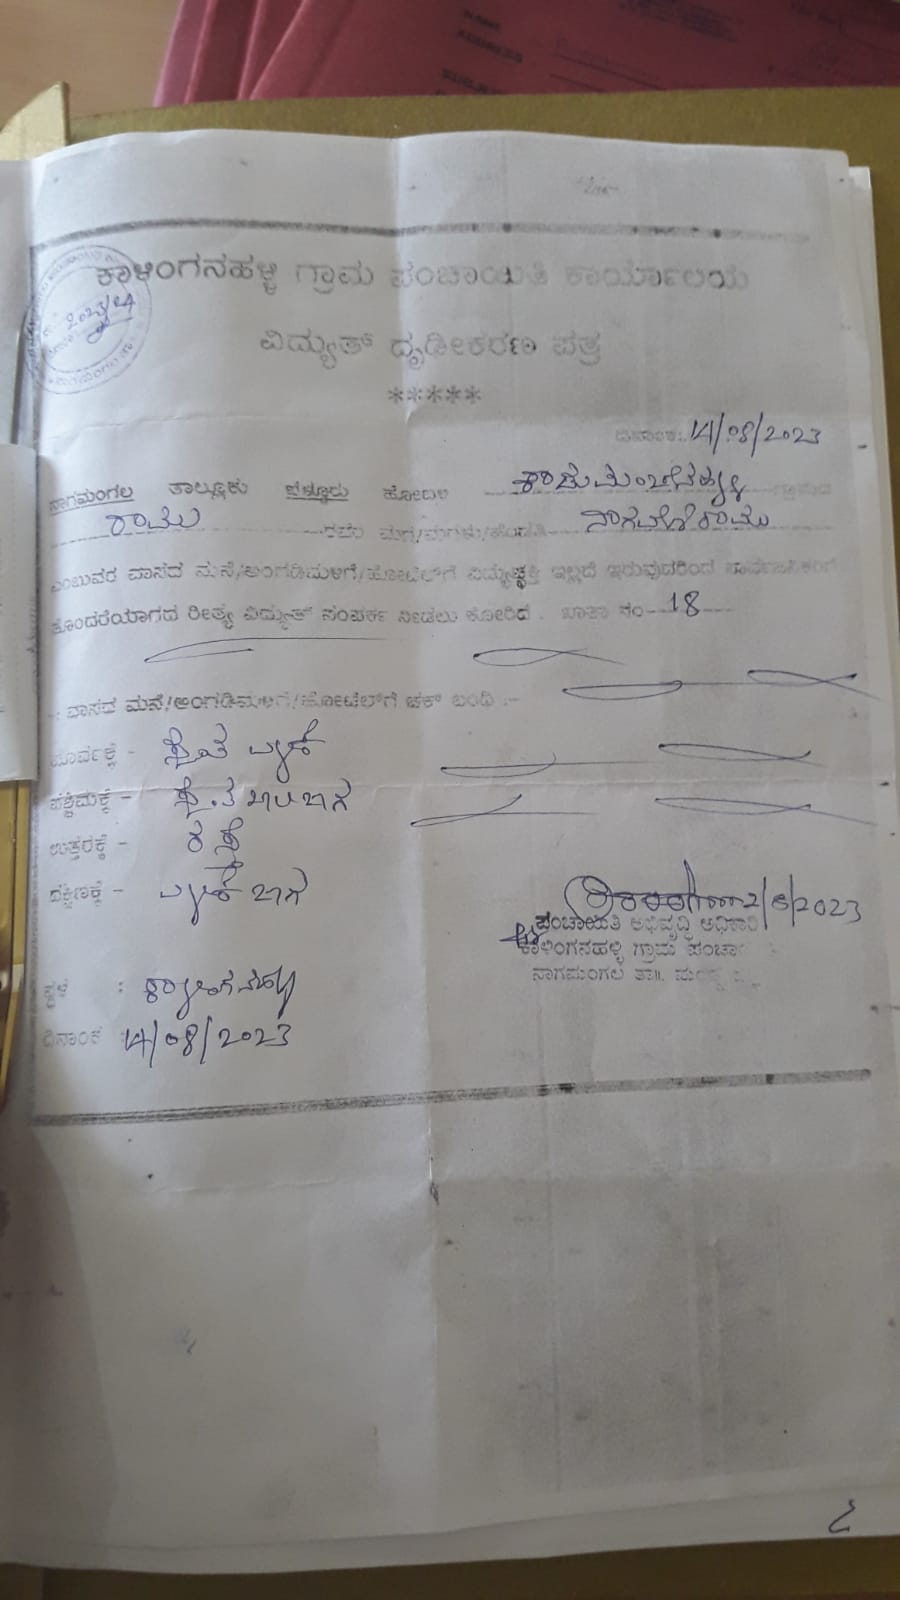 ಕಾಳಿಂಗನಹಳ್ಳಿ ಗ್ರಾಮ ಪಂಚಾಯಿತಿ ಕಾರ್ಯಾಲಯ
ವಿದ್ಯುತ್ ದೃಡೀಕರಣ ಪತ್ರ
*****
ದಿನಾಂಕ: 14/08/2023
ನಾಗಮಂಗಲ ತಾಲ್ಲೂಕು ಬೆಳ್ಳೂರು ಹೋಬಳಿ ಗ್ರಾಮದ
ರಾಮು ರವರ ಮಗ/ಮಗಳು/ಹೆಂಡತಿ
ಎಂಬುವರ ವಾಸದ ಮನೆ/ಅಂಗಡಿಮಳಿಗೆ/ಹೋಟೆಲ್‌ಗೆ ವಿದ್ಯುಚ್ಛಕ್ತಿ ಇಲ್ಲದೆ ಇರುವುದರಿಂದ ಸಾರ್ವಜನಿಕರಿಗೆ
ತೊಂದರೆಯಾಗದ ರೀತ್ಯ ವಿದ್ಯುತ್ ಸಂಪರ್ಕ ನೀಡಲು ಕೋರಿದೆ . ಖಾತಾ ನಂ 18
-: ವಾಸದ ಮನೆ/ಅಂಗಡಿಮಳಿಗೆ/ಹೋಟೆಲ್‌ಗೆ ಚಕ್ ಬಂಧಿ :-
ಪೂರ್ವಕ್ಕೆ -
ಪಶ್ಚಿಮಕ್ಕೆ -
ಉತ್ತರಕ್ಕೆ - ರಸ್ತೆ
ದಕ್ಷಿಣಕ್ಕೆ -
2/8/2023
ಪಂಚಾಯಿತಿ ಅಭಿವೃದ್ಧಿ ಅಧಿಕಾರಿ
ಕಾಳಿಂಗನಹಳ್ಳಿ ಗ್ರಾಮ ಪಂಚಾ
ನಾಗಮಂಗಲ ತಾ||.
ಸ್ಥಳ : ಕಾಳಿಂಗನಹಳ್ಳಿ
ದಿನಾಂಕ : 14/08/2023